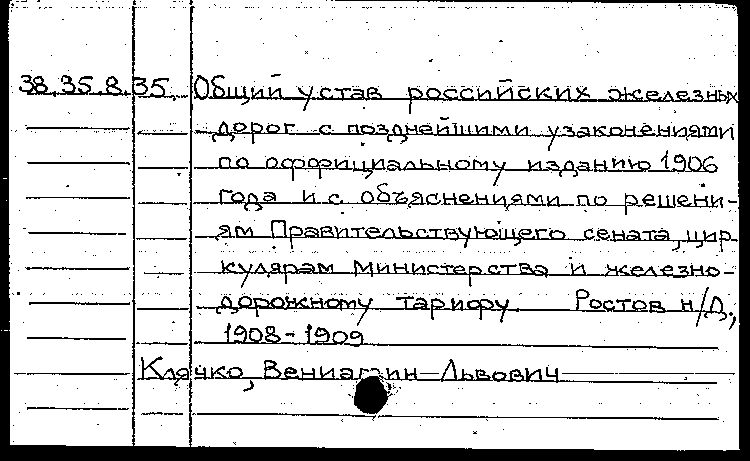 38.35.8.35. Общий устав российских железных
дорог с позднейшими узаконениями
по оффициальному изданию 1906
года и с объяснениями по решени-
ям Правительствующего сената, цир-
кулярам Министерства и железно-
дорожному тарифу. Ростов н/Д.,
1908-1909
Клячко, Вениамин Львович